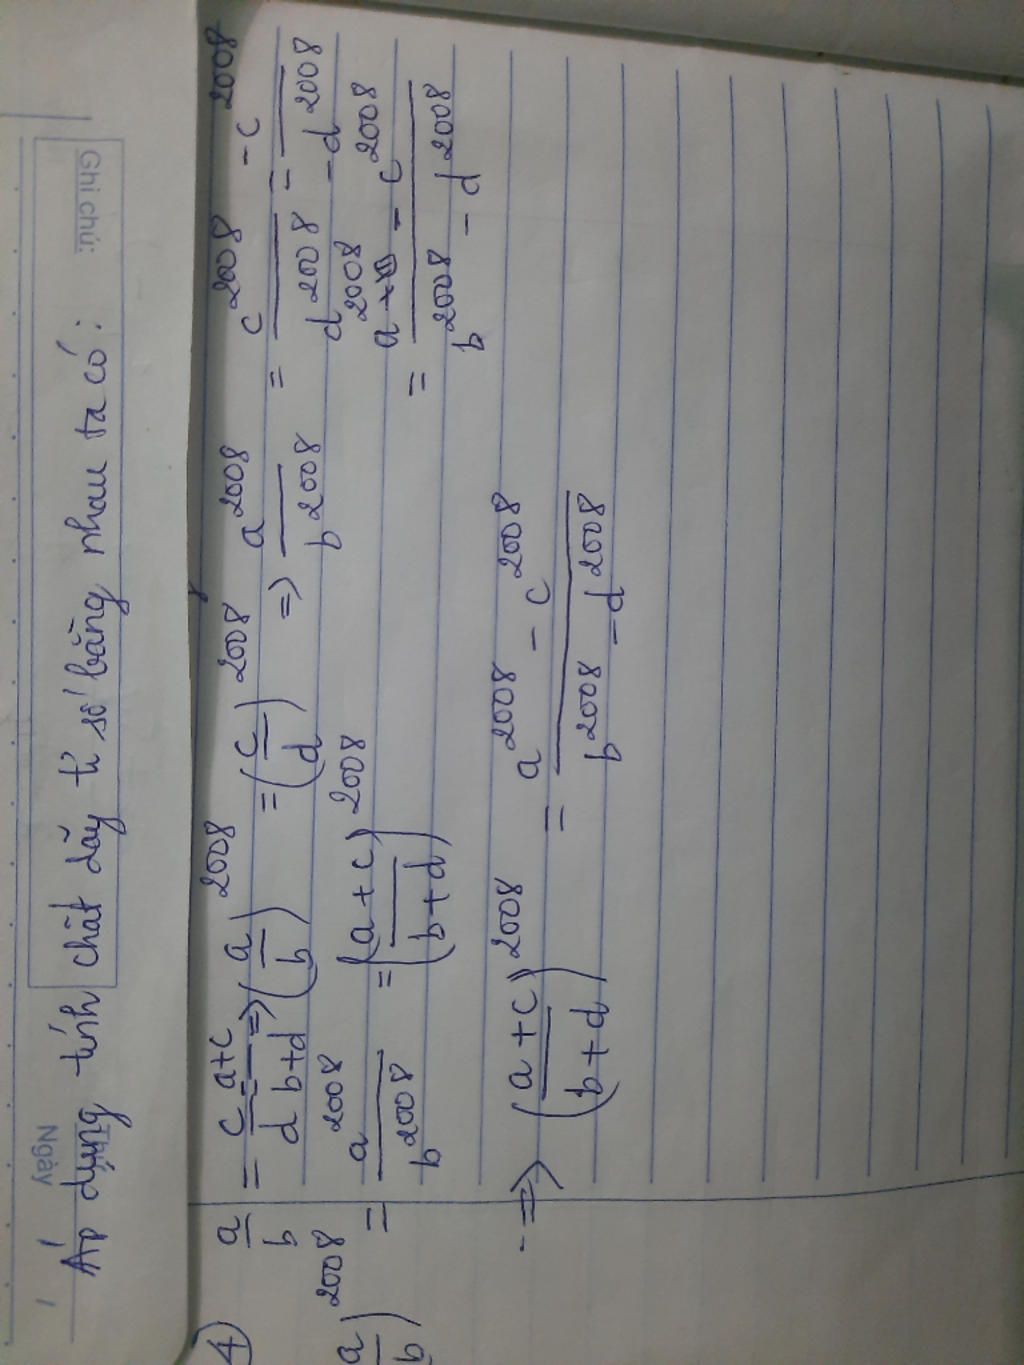 Ghi chú:
Ngày
Áp dụng tính chất dãy tỉ số bằng nhau ta có:
④ a/b = c/d = a+c/b+d => (a/b)^2008 = (c/d)^2008 => a^2008/b^2008 = c^2008/d^2008 = -c^2008/-d^2008
(a/b)^2008 = a^2008/b^2008 = (a+c/b+d)^2008 = a^2008 - c^2008/b^2008 - d^2008
=> (a+c/b+d)^2008 = a^2008 - c^2008/b^2008 - d^2008